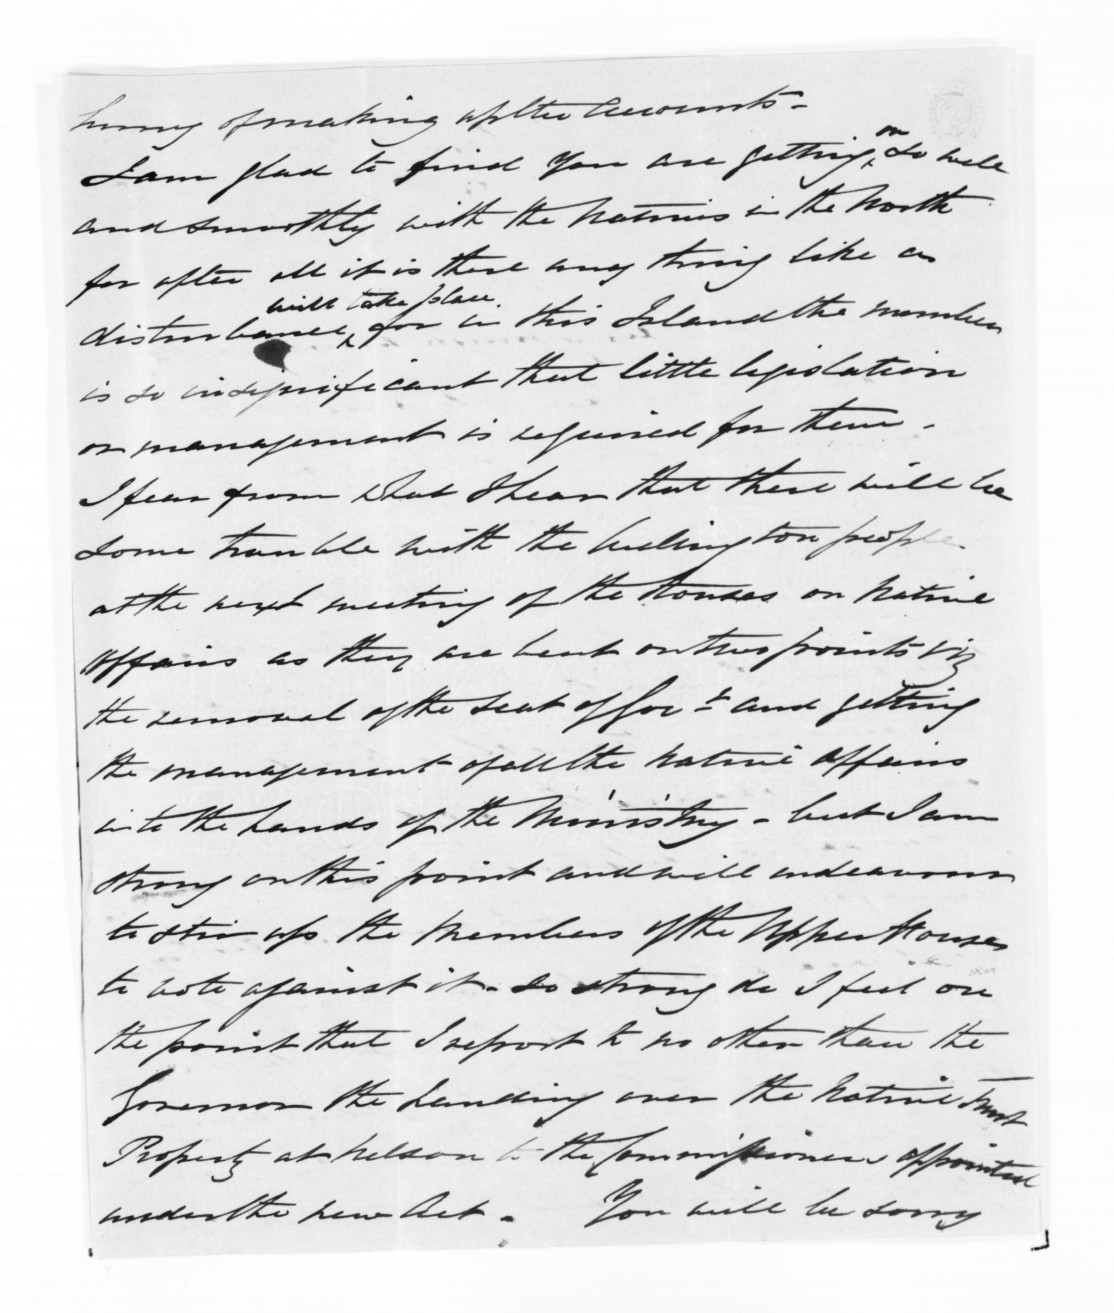 hurry of making up the Accounts -
I am glad to find you are getting on so well
and smoothly with the Natives in the North
for after all it is there any thing like a
disturbance will take place, for in this Island the number
is so insignificant that little legislation
or management is required for them -
I fear from what I hear that there will be
some trouble with the Wellington people
at the next meeting of the Houses on Native
Affairs as they are bent on two points viz
the removal of the seat of Govt and getting
the management of all the Native affairs
into the hands of the Ministry - but I am
strong on this point and will endeavour
to stir up the Members of the Upper House
to vote against it - so strong do I feel on
the point that I report to no other than the
Governor the handing over the Native Trust
Property at Nelson to the Commissioners appointed
under the new Act - You will be sorry